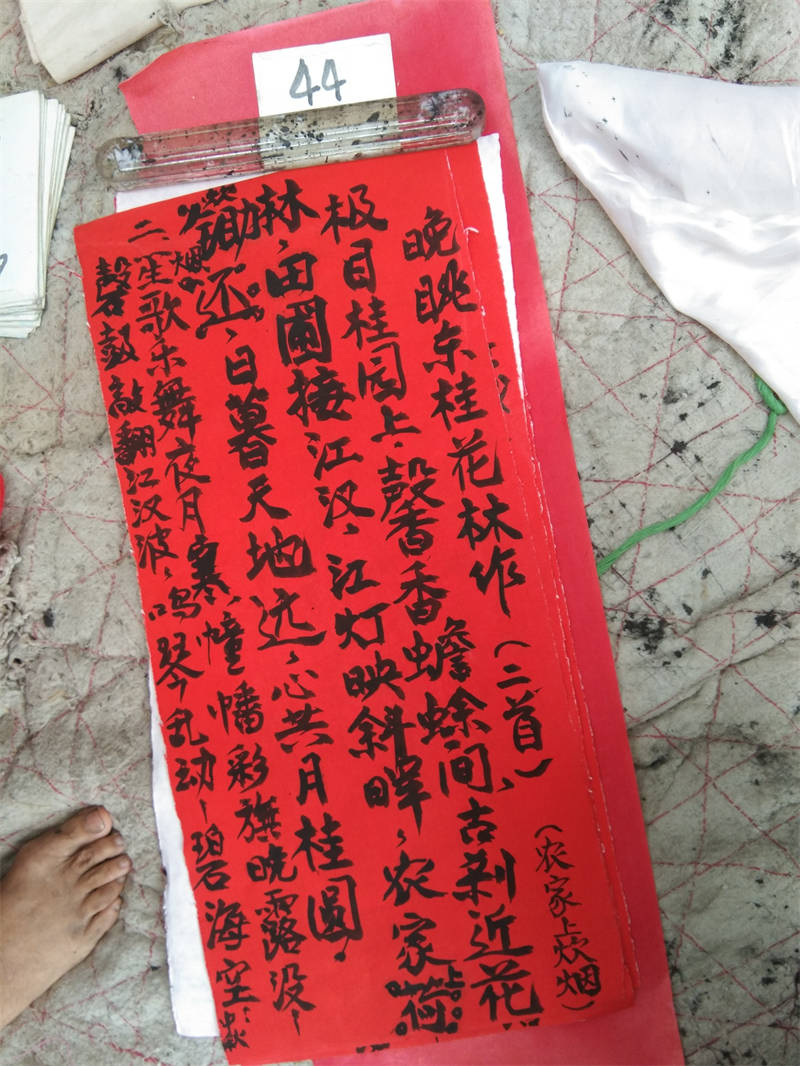 44
晚眺东桂花林作（二首）
（农家上炊烟）
极目桂园上、馨香蟾蜍间、古刹近花
林、田圃接江汉、江灯映斜晖、农家荷
锄还、日暮天地远、心共月桂圆。
二、笙歌乐舞夜月寒、幢幡彩旗晓露没、
磬鼓敲翻江汉波、鸣琴乱动、碧海空